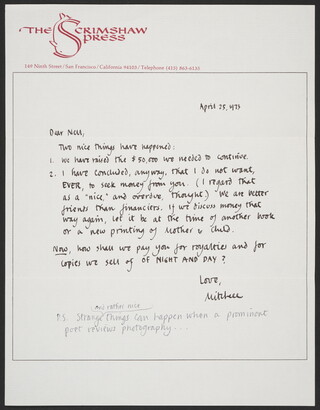 THE SCRIMSHAW
PRESS
149 Ninth Street / San Francisco / California 94103 / Telephone (415) 863-6135
April 25, 1973
Dear Nell,
Two nice things have happened:
1. We have raised the $50,000 we needed to continue.
2. I have concluded, anyway, that I do not want,
EVER, to seek money from you. (I regard that
as a "nice," and overdue, thought.) We are better
friends than financiers. If we discuss money that
way again, let it be at the time of another book
or a new printing of Mother & Child.
Now, how shall we pay you for royalties and for
copies we sell of OF NIGHT AND DAY?
Love,
Mitchell
and rather nice
P.S. Strange things can happen when a prominent
poet reviews photography...